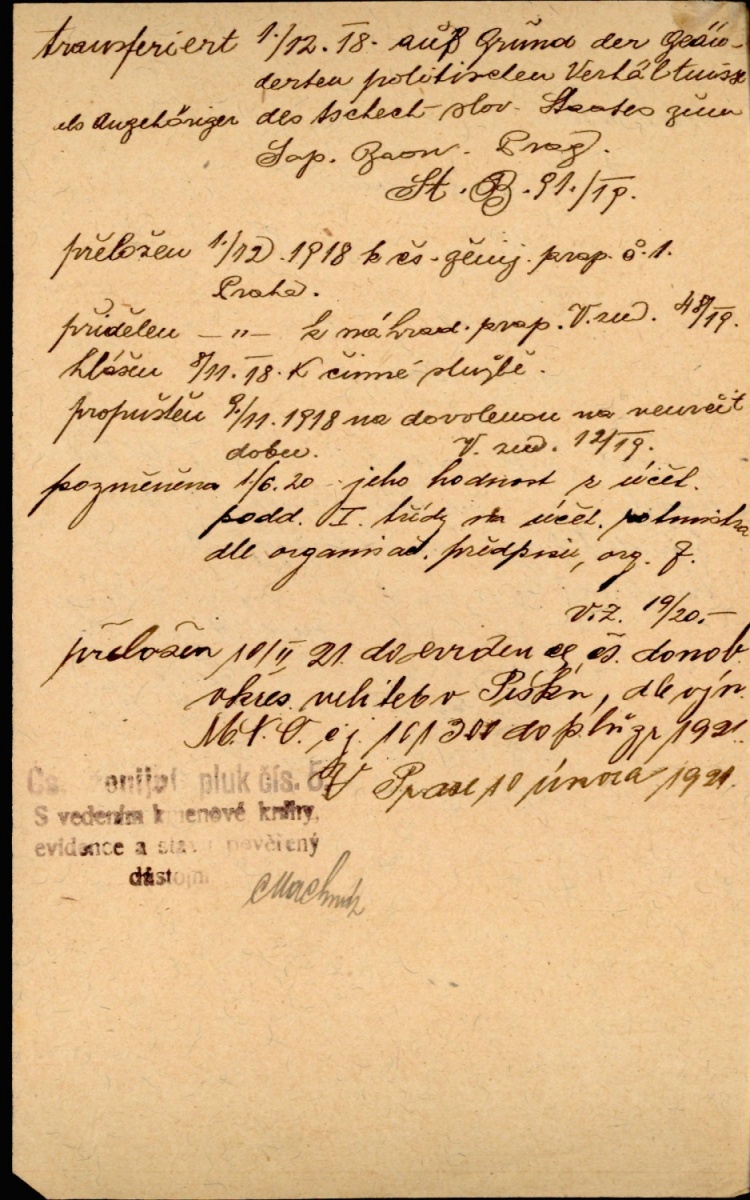 transferiert 1./12. 18. auf Grund der geän-
derten politischen Verhältnisse
als Angehöriger des tschech-slov. Staates zum
Sap. Baon. Prag.
St. B. 91./19.
přeložen 1./12. 1918 k čs. ženij. prap. č. 1.
Praha.
přidělen — „ — k náhrad. prap. V. zwd. 48/19.
hlášen 8/11. 18. K činné službě.
propuštěn 9./11. 1918 na dovolenou na neurčit
dobu. V. zwd. 12/19.
pozměněna 1/6. 20 jeho hodnost z účet.
podd. I. třídy na účet. rotmistra
dle organisač. předpisu, org. 7.
V.Z. 19/20.-
přeložen 10/II 21. do eviden čs. donob.
okres. velitelv Písku, dle výn.
M.N.O. čj. 101301 dopl. 1921.
V Praze 10 února 1921.
pluk čís. 5.
S vedením kmenové knihy,
evidence a stavu pověřený
důstojn.